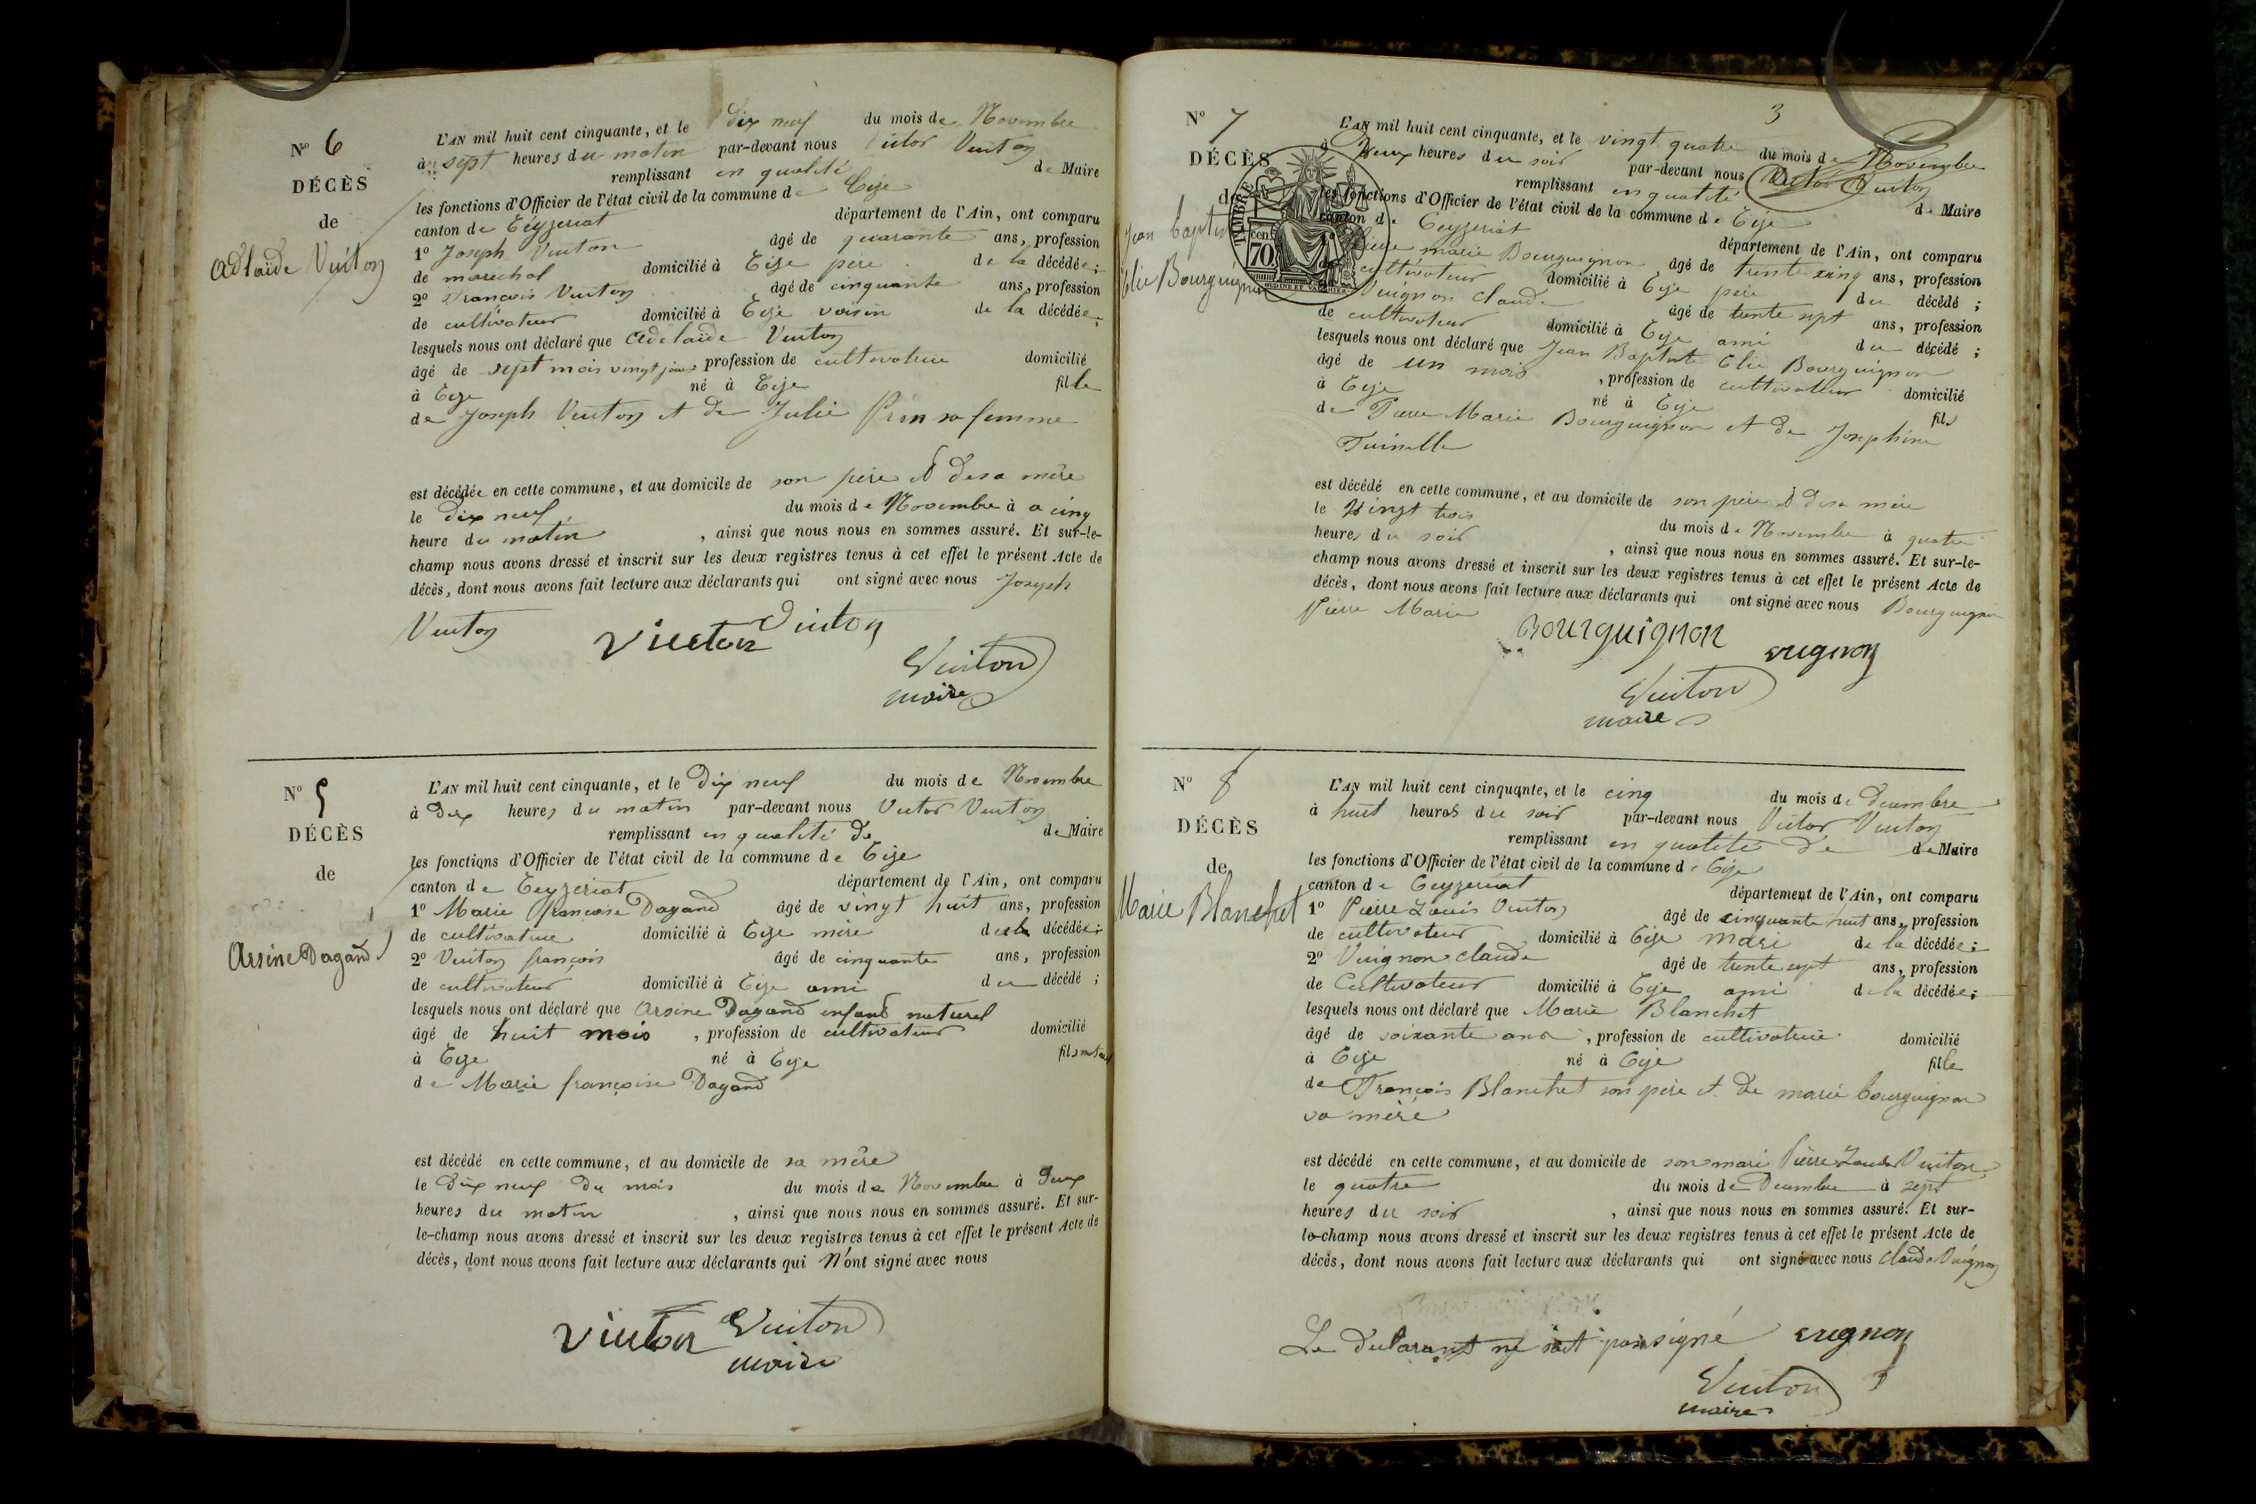 N° 6
DÉCÈS
de
Adlaïde Vuiton
L'AN mil huit cent cinquante, et le dix neuf du mois de Novembre
à sept heures du matin par-devant nous Victor Vuiton
remplissant en qualité de Maire
les fonctions d'Officier de l'état civil de la commune de Cize
canton de Ceyzeriat département de l'Ain, ont comparu
1° Joseph Vuiton âgé de quarante ans, profession
de marechal domicilié à Cize père de la décédée;
2° François Vuiton âgé de cinquante ans, profession
de cultivateur domicilié à Cize voisin de la décédée;
lesquels nous ont déclaré que Adélaïde Vuiton
âgé de sept mois vingt jours profession de cultivatrice domicilié
à Cize né à Cize fille
de Joseph Vuiton et de Julie Prin sa femme
est décédée en cette commune, et au domicile de son père et de sa mère
le dix neuf du mois de Novembre à a cinq
heure du matin, ainsi que nous nous en sommes assuré. Et sur-le-
champ nous avons dressé et inscrit sur les deux registres tenus à cet effet le présent Acte de
décès, dont nous avons fait lecture aux déclarants qui ont signé avec nous Joseph
Vuiton
Vuiton Vuiton
Vuiton
maire
N° 5
DÉCÈS
de
Arsine Dagand
L'AN mil huit cent cinquante, et le Dix neuf du mois de Novembre
à Dix heures du matin par-devant nous Victor Vuiton
remplissant en qualité de de Maire
les fonctions d'Officier de l'état civil de la commune de Cize
canton de Ceyzeriat département de l'Ain, ont comparu
1° Marie françoise Dagand âgé de vingt huit ans, profession
de cultivatrice domicilié à Cize mère de la décédée;
2° Vuiton françois âgé de cinquante ans, profession
de cultivateur domicilié à Cize ami du décédé;
lesquels nous ont déclaré que Arsine Dagand enfant naturel
âgé de huit mois, profession de cultivateur domicilié
à Cize né à Cize fils naturel
de Marie françoise Dagand
est décédé en cette commune, et au domicile de sa mère
le dix neuf du mois du mois de Novembre à Deux
heures du matin, ainsi que nous nous en sommes assuré. Et sur-
le-champ nous avons dressé et inscrit sur les deux registres tenus à cet effet le présent Acte de
décès, dont nous avons fait lecture aux déclarants qui N'ont signé avec nous
Vuiton Vuiton
maire
3
N° 7
DÉCÈS
de
Jean Baptiste
Elie Bourguignon
TIMBRE
70
L'AN mil huit cent cinquante, et le vingt quatre du mois de Novembre
à Deux heures du soir par-devant nous Victor Vuiton
remplissant en qualité de Maire
les fonctions d'Officier de l'état civil de la commune de Cize
canton de Ceyzeriat département de l'Ain, ont comparu
Pierre marie Bourguignon âgé de trente cinq ans, profession
cultivateur domicilié à Cize père du décédé;
Vuignon claude âgé de trente sept ans, profession
de cultivateur domicilié à Cize ami du décédé;
lesquels nous ont déclaré que Jean Baptiste Elie Bourguignon
âgé de un mois, profession de cultivateur domicilié
à Cize né à Cize fils
de Pierre Marie Bourguignon et de Josephine
est décédé en cette commune, et au domicile de son père et de sa mère
le Vingt trois du mois de Novembre à quatre
heures du soir, ainsi que nous nous en sommes assuré. Et sur-le-
champ nous avons dressé et inscrit sur les deux registres tenus à cet effet le présent Acte de
décès, dont nous avons fait lecture aux déclarants qui ont signé avec nous Bourguignon
Pierre Marie
Bourguignon vugnon
Vuiton
maire
N° 8
DÉCÈS
de
Marie Blanchet
L'AN mil huit cent cinquante, et le cinq du mois de Decembre
à huit heures du soir par-devant nous Victor Vuiton
remplissant en qualité de de Maire
les fonctions d'Officier de l'état civil de la commune de Cize
canton de Ceyzeriat département de l'Ain, ont comparu
1° Pierre Louis Vuiton âgé de cinquante huit ans, profession
de cultivateur domicilié à Cize mari de la décédée;
2° Vuignon claude âgé de trente sept ans, profession
de Cultivateur domicilié à Cize ami de la décédée;
lesquels nous ont déclaré que Marie Blanchet
âgé de soixante ans, profession de cultivatrice domicilié
à Cize né à Cize fille
de François Blanchet son père et de marie bourguignon
sa mère
est décédé en cette commune, et au domicile de son mari Pierre Louis Vuiton
le quatre du mois de Decembre à sept
heures du soir, ainsi que nous nous en sommes assuré. Et sur-
le-champ nous avons dressé et inscrit sur les deux registres tenus à cet effet le présent Acte de
décès, dont nous avons fait lecture aux déclarants qui ont signé avec nous claude Vuignon
Le declarant ne sait pas signé vugnon
Vuiton
maire